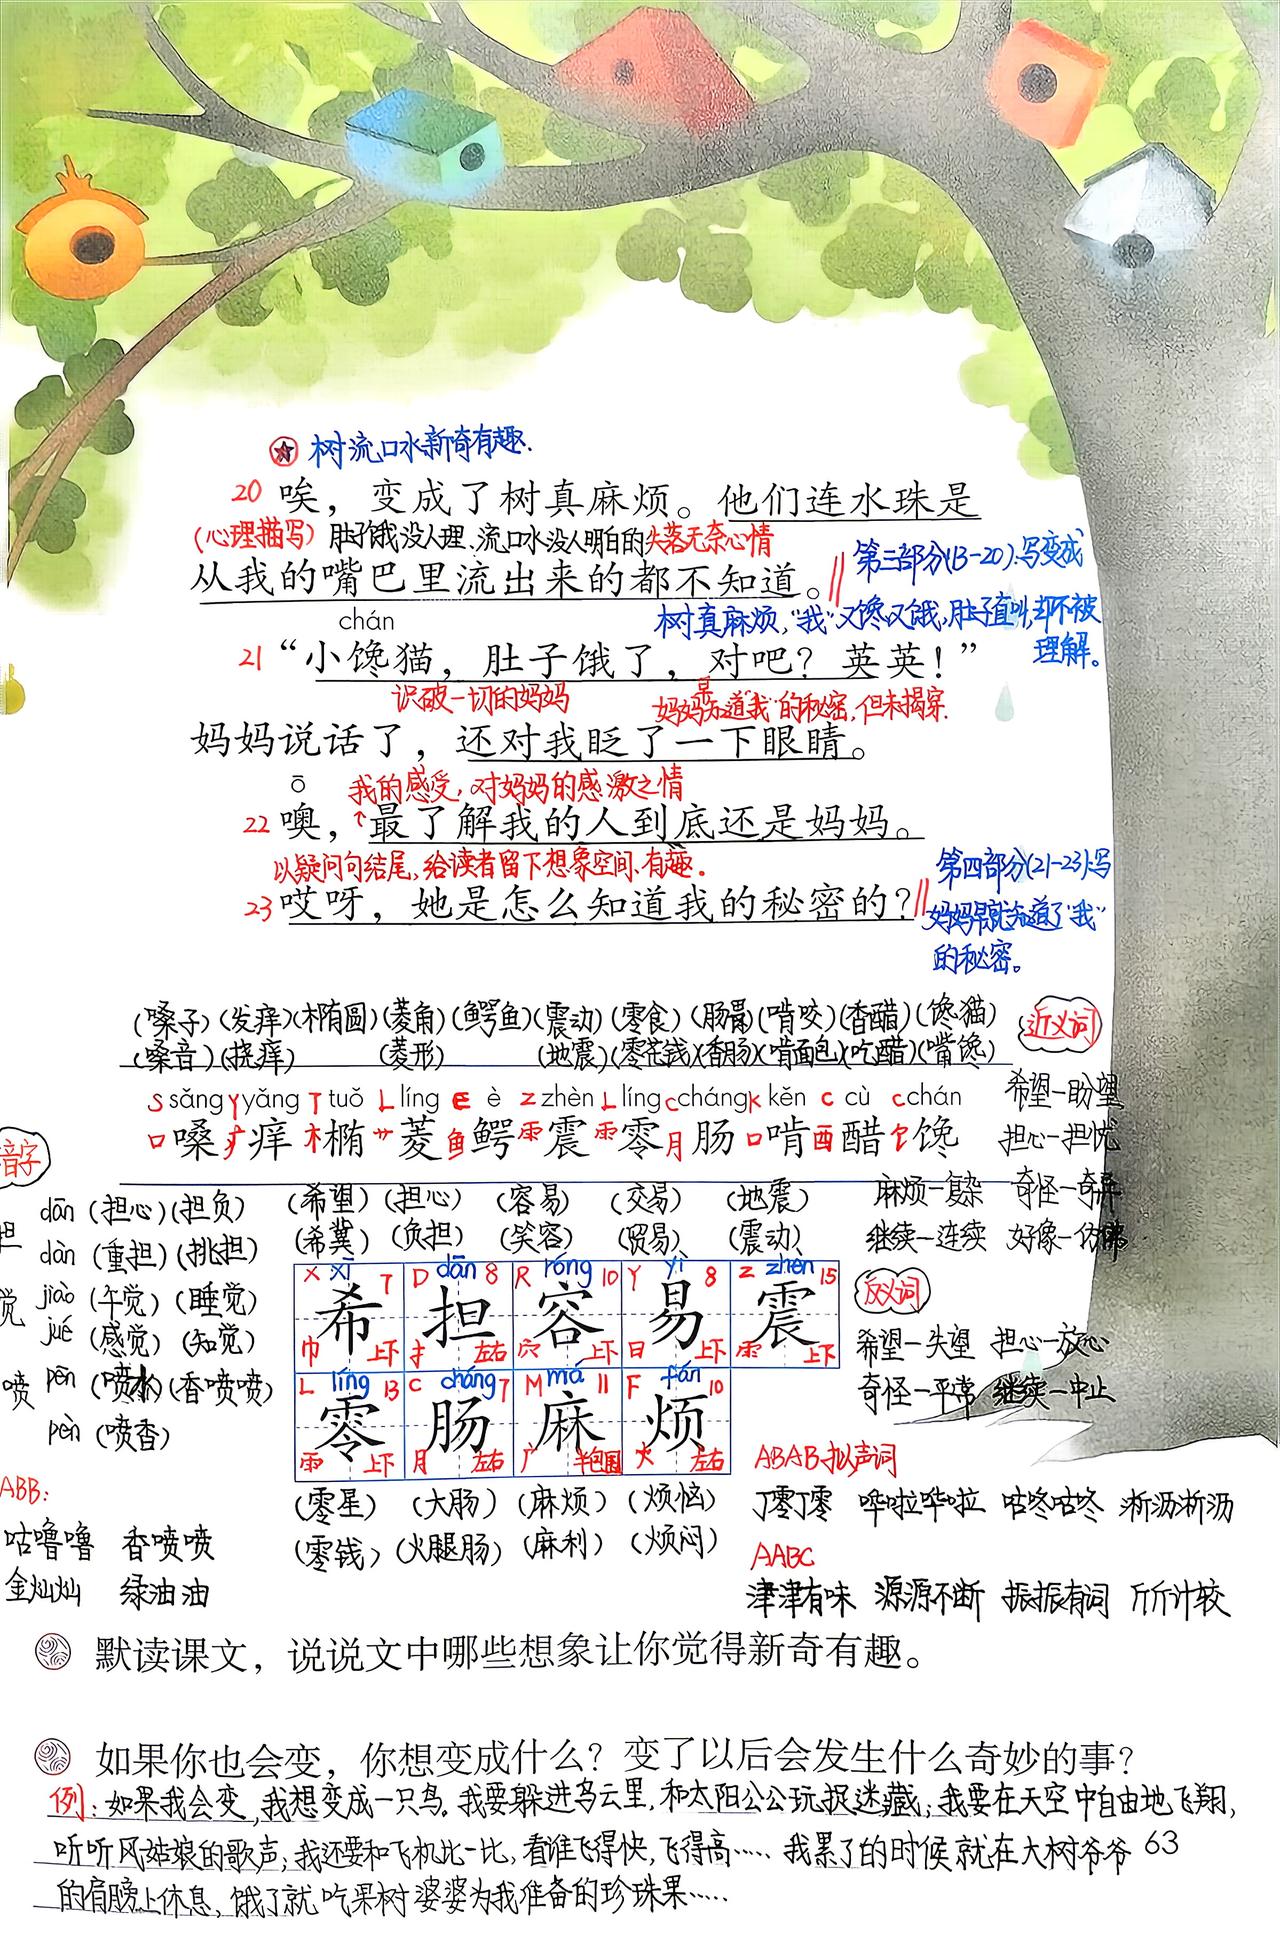 树流口水新奇有趣.
20 唉，变成了树真麻烦。他们连水珠是
(心理描写) 肚子饿没人理、流口水没人明白的失落无奈心情
从我的嘴巴里流出来的都不知道。
第三部分(13-20):写变成
树真麻烦,"我"又馋又饿,肚子直叫,却不被
理解。
chán
21 “小馋猫，肚子饿了，对吧？英英！”
识破一切的妈妈
妈妈早知道"我"的秘密,但未揭穿.
妈妈说话了，还对我眨了一下眼睛。
ō
我的感受,对妈妈的感激之情
22 噢，↑最了解我的人到底还是妈妈。
以疑问句结尾,给读者留下想象空间、有趣。
23 哎呀，她是怎么知道我的秘密的？
第四部分(21-23):写
妈妈早就知道了"我"
的秘密。
(嗓子)(发痒)(椭圆)(菱角)(鳄鱼)(震动)(零食)(肠胃)(啃咬)(香醋)(馋猫)
(嗓音)(挠痒) (菱形) (地震)(零花钱)(香肠)(啃面包)(吃醋)(嘴馋)
S sǎng Y yǎng T tuǒ L líng E è Z zhèn L líng C cháng K kěn C cù C chán
口嗓 疒痒 木椭 艹菱 鱼鳄 雨震 雨零 月肠 口啃 酉醋 饣馋
近义词
希望—盼望
担心—担忧
麻烦—复杂 奇怪—奇异
继续—连续 好像—仿佛
音字
担 dān (担心)(担负)
dàn (重担)(挑担)
觉 jiào (午觉)(睡觉)
jué (感觉)(知觉)
喷 pēn (喷水)(香喷喷)
pèn (喷香)
(希望)(担心)(容易)(交易)(地震)
(希冀)(负担)(笑容)(贸易)(震动)
X xī 7 D dān 8 R róng 10 Y yì 8 Z zhèn 15
希 担 容 易 震
巾 上下 扌 左右 穴 上下 日 上下 雨 上下
L líng 13 C cháng 7 M má 11 F fán 10
零 肠 麻 烦
雨 上下 月 左右 广 半包围 火 左右
(零星)(大肠)(麻烦)(烦恼)
(零钱)(火腿肠)(麻利)(烦闷)
反义词
希望—失望 担心—放心
奇怪—平常 继续—中止
ABB:
咕噜噜 香喷喷
金灿灿 绿油油
ABAB拟声词
丁零丁零 哗啦哗啦 咕咚咕咚 淅沥淅沥
AABC
津津有味 源源不断 振振有词 斤斤计较
默读课文，说说文中哪些想象让你觉得新奇有趣。
如果你也会变，你想变成什么？变了以后会发生什么奇妙的事？
例:如果我会变,我想变成一只鸟。我要躲进乌云里,和太阳公公玩捉迷藏;我要在天空中自由地飞翔,
听听风姑娘的歌声;我还要和飞机比一比,看谁飞得快,飞得高……我累了的时候就在大树爷爷
63
的肩膀上休息,饿了就吃果树婆婆为我准备的珍珠果……